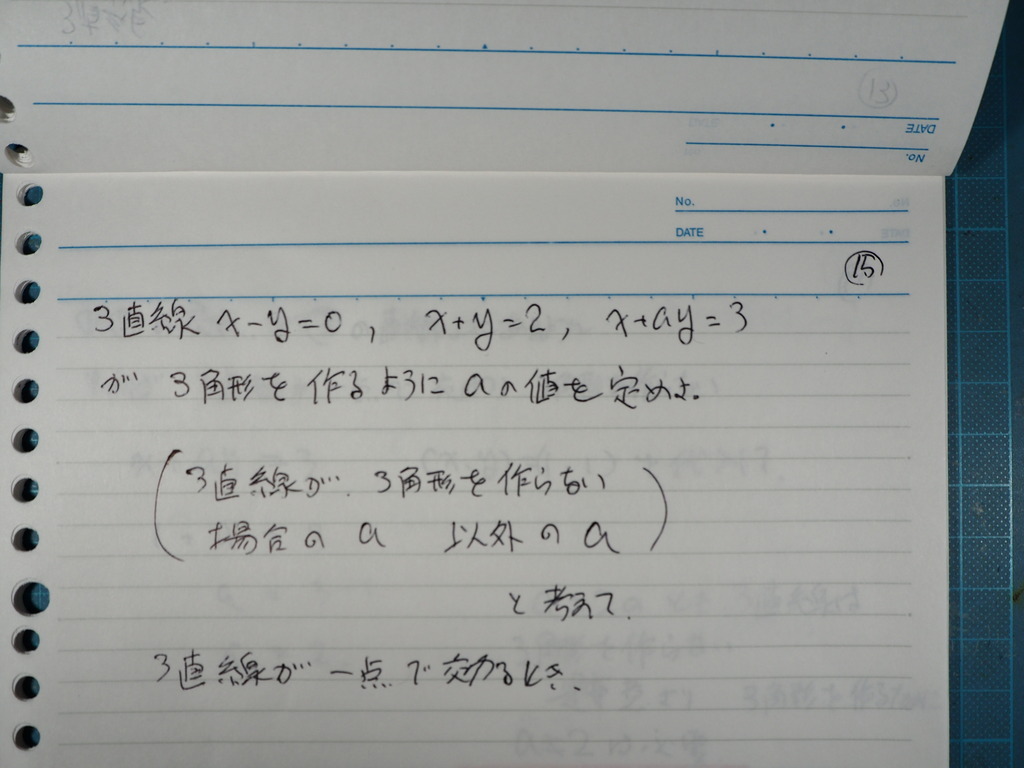 No.
DATE
15
3直線 x-y=0, x+y=2, x+ay=3
が 3角形を作るようにaの値を定めよ。
(3直線が、3角形を作らない
場合の a 以外の a)
と考えて、
3直線が一点で交わるとき、
13
DATE
No.